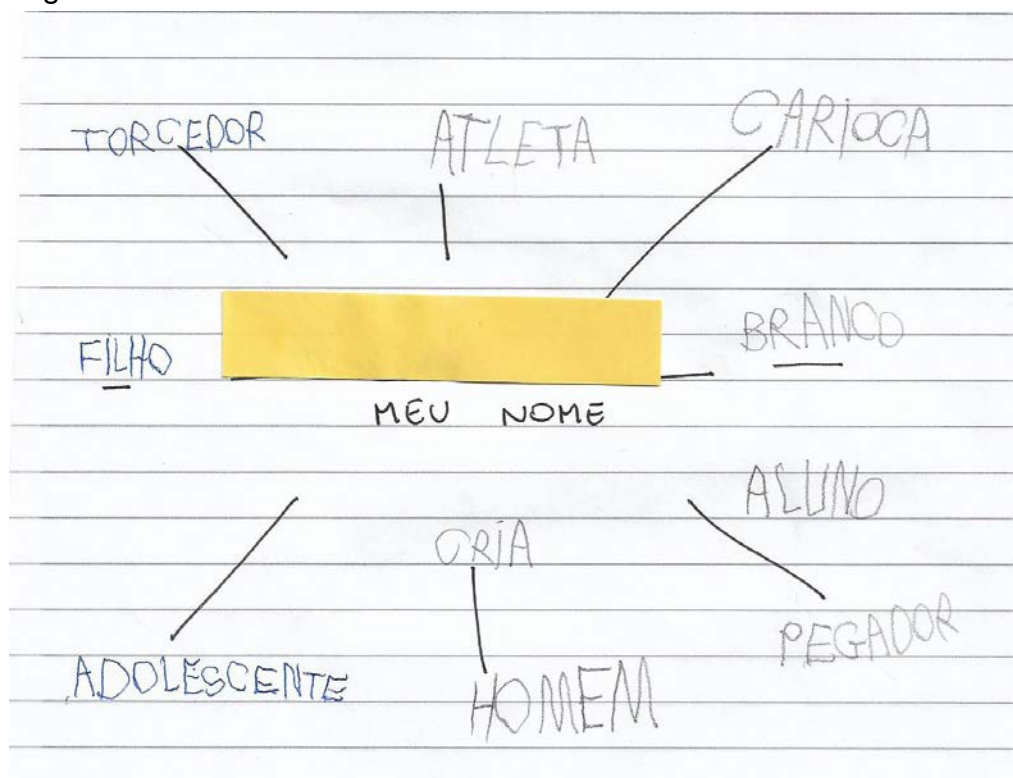 TORCEDOR ATLETA CARIOCA
FILHO BRANCO
MEU NOME
ALUNO
CRIA
PEGADOR
ADOLESCENTE HOMEM